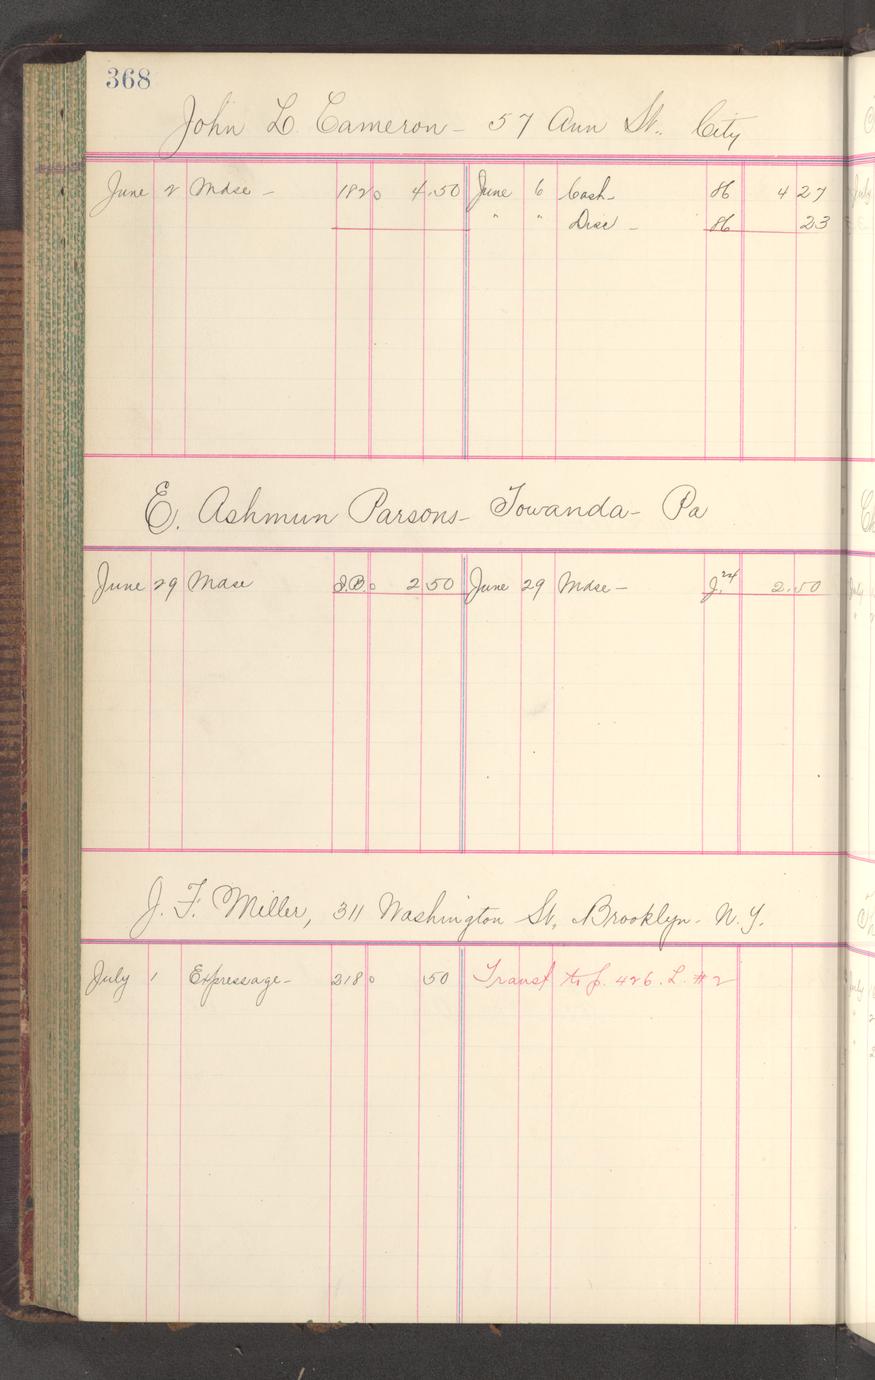 368
John L. Cameron - 57 Ann St. City
June 2 Mdse - 182 4.50 June 6 Cash - 86 4 27
" " Disc - 86 23
E. Ashmun Parsons - Towanda - Pa
June 29 Mdse S.B. 2 50 June 29 Mdse - J. 2.50
J. F. Miller, 311 Washington St, Brooklyn - N.Y.
July 1 Expressage - 218 50 Transf to p. 426. L. #2